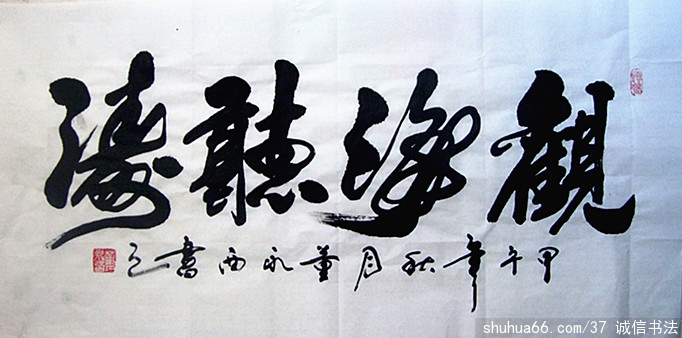 觀海聽濤
甲午年秋月董永西書之
shuhua66.com/37 诚信书法